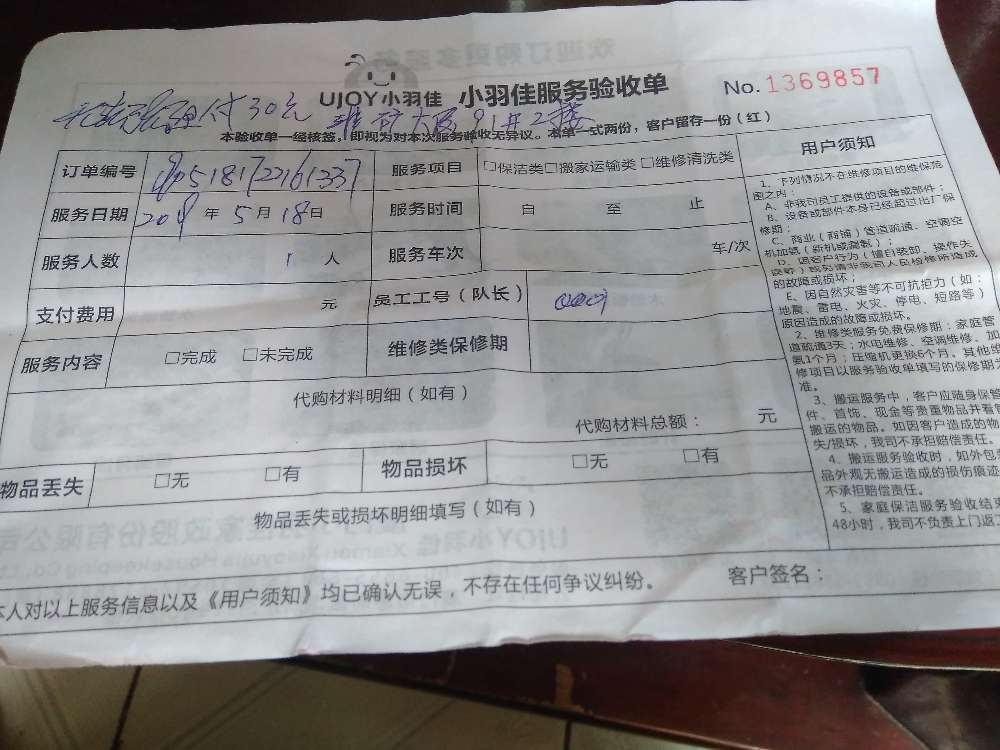 UJOY小羽佳 小羽佳服务验收单 No.1369857
付30元
2楼
本验收单一经核签，即视为对本次服务验收无异议。本单一式两份，客户留存一份（红）
订单编号
服务项目 □保洁类□搬家运输类□维修清洗类
服务日期 年5月18日
服务时间 自 至 止
服务人数 1 人
服务车次 车/次
支付费用 元
员工工号（队长）
服务内容 □完成 □未完成
维修类保修期
代购材料明细（如有）
代购材料总额： 元
物品丢失 □无 □有
物品损坏 □无 □有
物品丢失或损坏明细填写（如有）
本人对以上服务信息以及《用户须知》均已确认无误，不存在任何争议纠纷。 客户签名：
用户须知
1、下列情况不在维修项目的维保范
围之内：
A、非我司员工提供的设备或部件；
B、设备或部件本身已经超过出厂保
修期；
C、商业（商铺）管道疏通、空调空
机加氨（新机或漏氨）；
D、因客户行为（擅自装卸、操作失
的故障或损坏；
E、因自然灾害等不可抗拒力（如：
地震、雷电、火灾、停电、短路等）
原因造成的故障或损坏。
2、维修类服务免费保修期：家庭管
道疏通3天；水电维修、空调维修、加
氨1个月；压缩机更换6个月。其他维
修项目以服务验收单填写的保修期为
准。
3、搬运服务中，客户应随身保管
件、首饰、现金等贵重物品并看管
搬运的物品。如因客户造成的物
失/损坏，我司不承担赔偿责任。
4、搬运服务验收时，如外包
品外观无搬运造成的损伤痕迹
不承担赔偿责任。
5、家庭保洁服务验收结束
48小时，我司不负责上门返